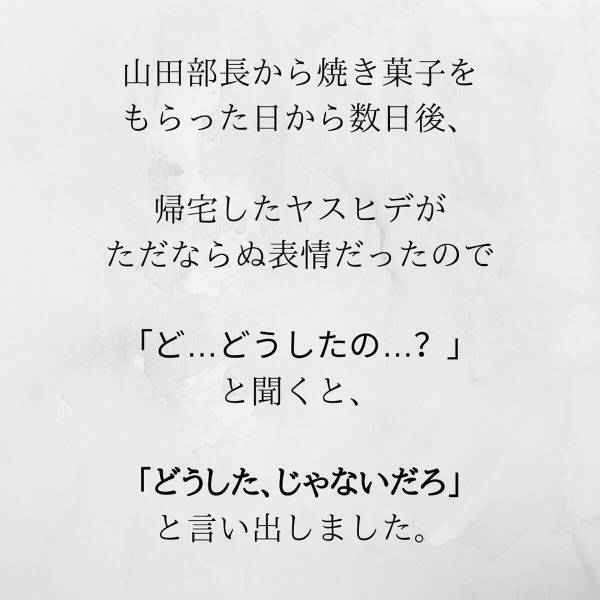 山田部長から焼き菓子を
もらった日から数日後、
帰宅したヤスヒデが
ただならぬ表情だったので
「ど…どうしたの…？」
と聞くと、
「どうした、じゃないだろ」
と言い出しました。